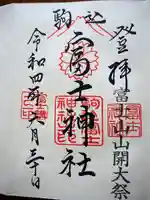 登拝
富士山山開大祭
駒込
富士神社
令和四年六月三十日